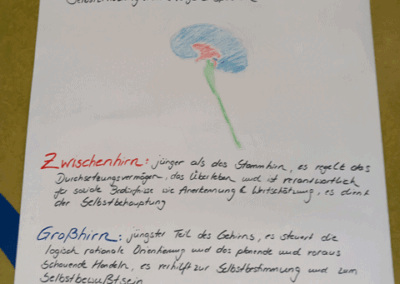 Zwischenhirn: jünger als das Stammhirn, es regelt das
Durchsetzungsvermögen, das Überleben und ist verantwortlich
für soziale Bedürfnisse wie Anerkennung & Wertschätzung, es dient
der Selbstbehauptung
Großhirn: jüngster Teil des Gehirns, es steuert die
logisch rationale Orientierung und das planende und voraus
schauende Handeln, es verhilft zur Selbstbestimmung und zum
Selbstbewußtsein